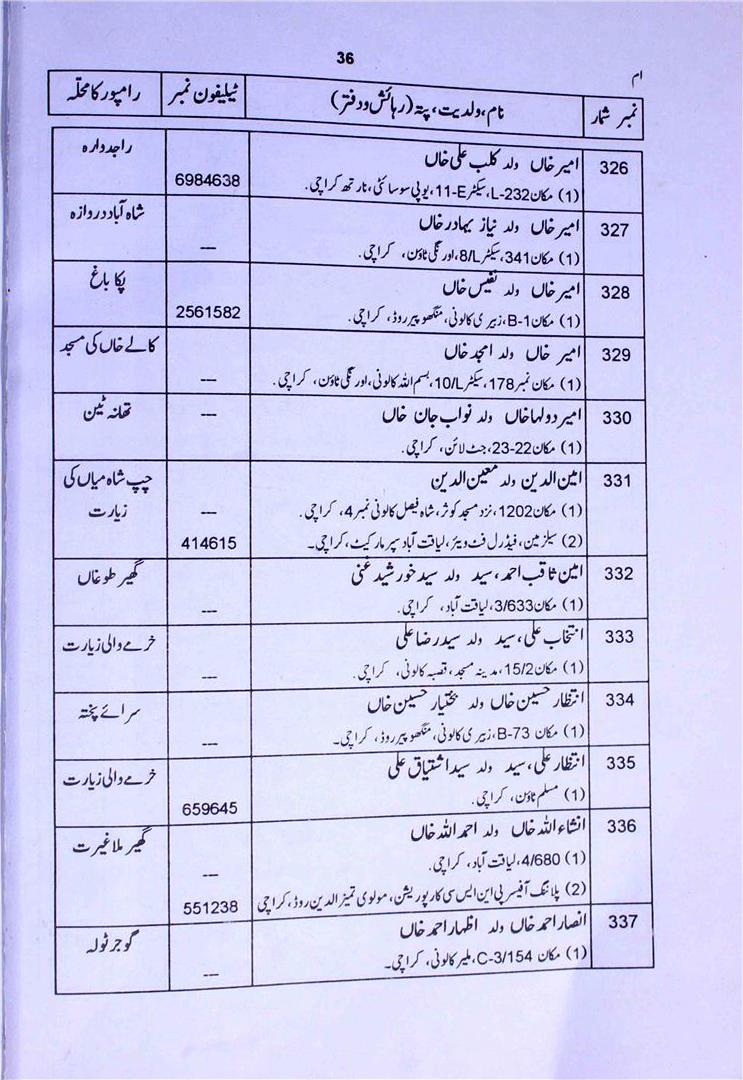 36
ام
نمبر شمار	نام، ولدیت، پتہ (رہائش و دفتر)	ٹیلیفون نمبر	رامپور کا محلّہ
326	امیر خاں ولد کلب علی خاں	راجدوارہ
(1) مکان L-232، سیکٹر 11-E، یوپی سوسائٹی، نارتھ کراچی۔	6984638
327	امیر خاں ولد نیاز بہادر خاں	شاہ آباد دروازہ
(1) مکان 341، سیکٹر 8/L، اورنگی ٹاؤن، کراچی۔	---
328	امیر خاں ولد نفیس خاں	پکا باغ
(1) مکان B-1، زبیری کالونی، منگھو پیر روڈ، کراچی۔	2561582
329	امیر خاں ولد امجد خاں	کالے خاں کی مسجد
(1) مکان نمبر 178، سیکٹر 10/L، بسم اللہ کالونی، اورنگی ٹاؤن، کراچی۔	---
330	امیر دولہا خاں ولد نواب جان خاں	---	تھانہ ٹین
(1) مکان 23-22، جٹ لائن، کراچی۔
331	امین الدین ولد معین الدین	چپ شاہ میاں کی
(1) مکان 1202، نزد مسجد کوثر، شاہ فیصل کالونی نمبر 4، کراچی۔	---	زیارت
(2) سیلز مین، فیڈرل فٹ ویئر، لیاقت آباد سپر مارکیٹ، کراچی۔	414615
332	امین ثاقب احمد، سید ولد سید خورشید غنی	گھیر طوغاں
(1) مکان 3/633، لیاقت آباد، کراچی۔	---
333	انتخاب علی، سید ولد سید رضا علی	خرمے والی زیارت
(1) مکان 15/2، مدینہ مسجد، قصبہ کالونی، کراچی۔	---
334	انتظار حسین خاں ولد بختیار حسین خاں	سرائے پختہ
(1) مکان B-73، زبیری کالونی، منگھو پیر روڈ، کراچی۔	---
335	انتظار علی، سید ولد سید اشتیاق علی	خرمے والی زیارت
(1) مسلم ٹاؤن، کراچی۔	659645
336	انشاء اللہ خاں ولد احمد اللہ خاں	گھیر ملا غیرت
(1) 4/680، لیاقت آباد، کراچی۔	---
(2) پلاننگ آفیسر پی این ایس سی کارپوریشن، مولوی تمیز الدین روڈ، کراچی	551238
337	انصار احمد خاں ولد اظہار احمد خاں	گوجر ٹولہ
(1) مکان C-3/154، ملیر کالونی، کراچی۔	---